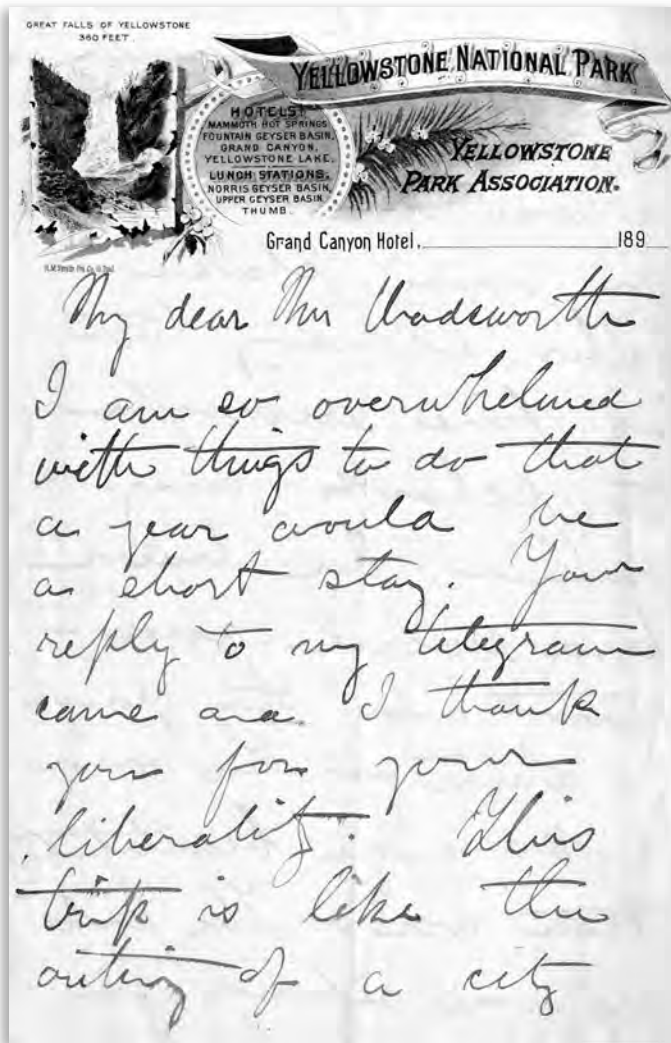 GREAT FALLS OF YELLOWSTONE
360 FEET.
YELLOWSTONE NATIONAL PARK
HOTELS:
MAMMOTH HOT SPRINGS
FOUNTAIN GEYSER BASIN,
GRAND CANYON,
YELLOWSTONE LAKE.
LUNCH STATIONS.
NORRIS GEYSER BASIN,
UPPER GEYSER BASIN
THUMB.
YELLOWSTONE
PARK ASSOCIATION.
Grand Canyon Hotel, 189
My dear Mr Wadsworth
I am so overwhelmed
with things to do that
a year would be
a short stay. Your
reply to my telegram
came and I thank
you for your
liberality. This
trip is like the
outing of a city